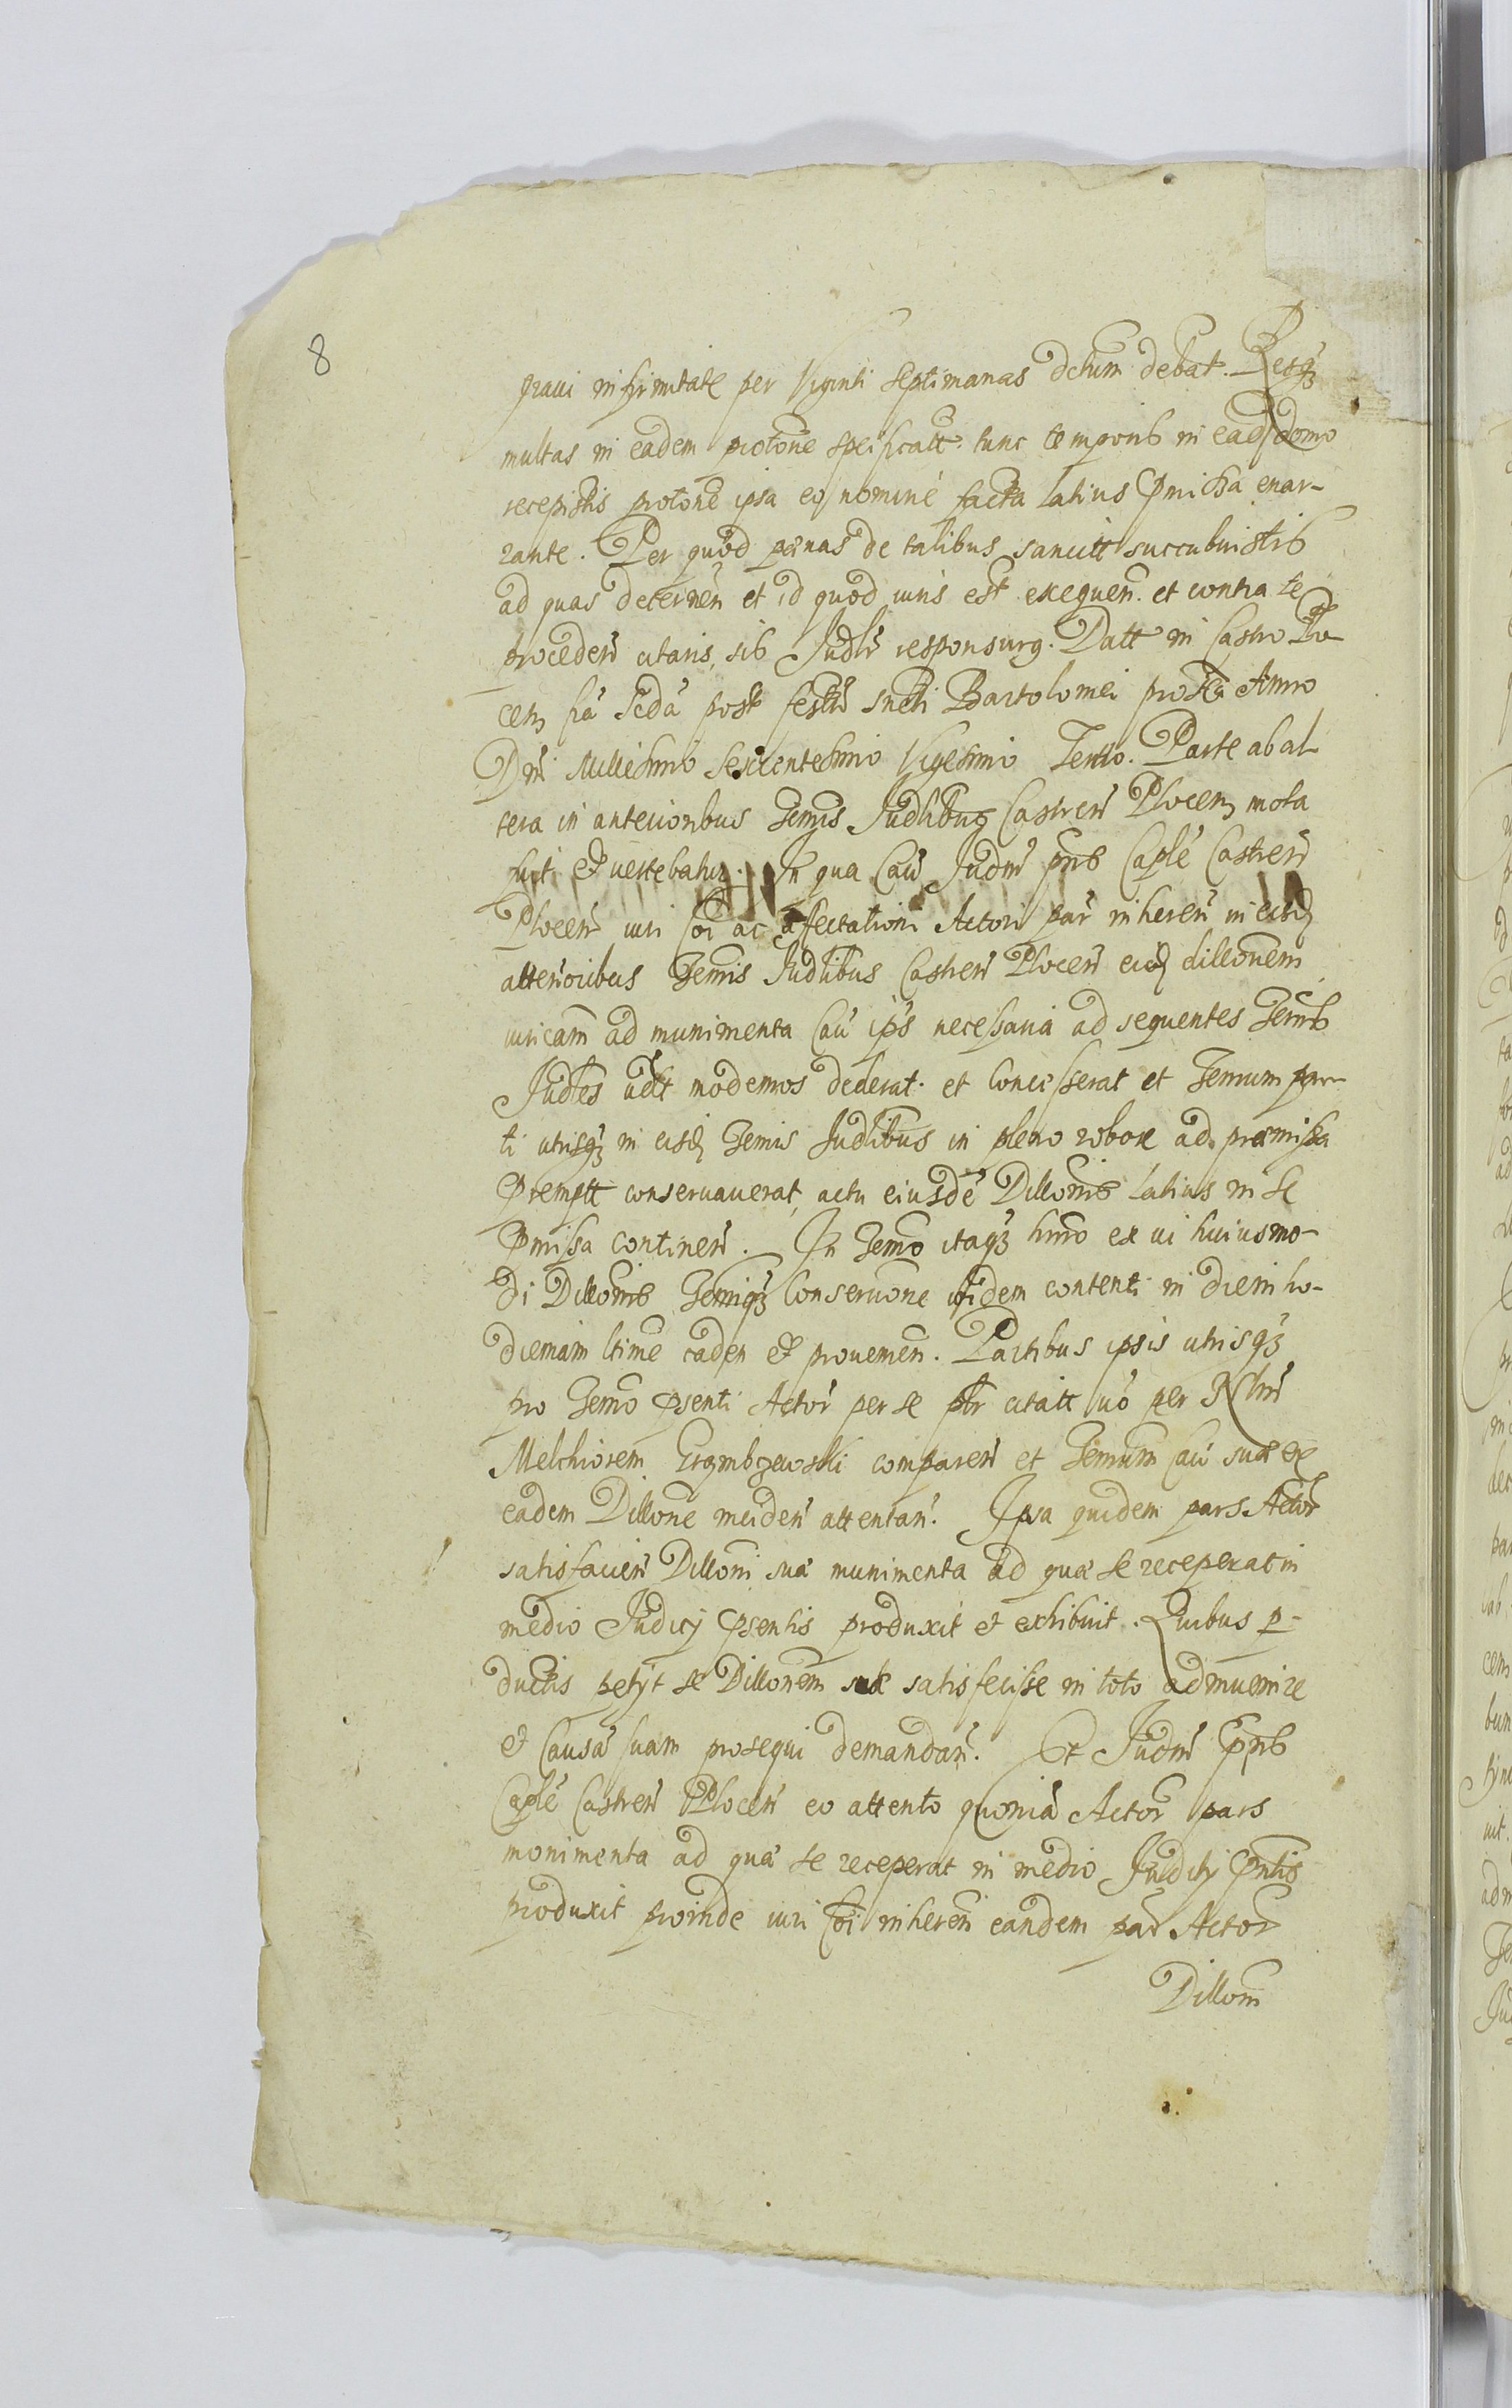 8
graui infirmitate per Viginti septimanas dctum debat. Resqz
multas in eadem prōtōne speificatt. tunc temporis in eadē domo
recepistis protonē ipsa eo nominé facta latius pmissa enar-
rante. Per quod pœnas de talibus sancitt succubuistis
ad quas decernen̄ et id quod iuris est exequen̄. et contra te
proceden̄ citaris, sis Judlr responsurg. Datt in Castro Plo-
cen̄ fia 2cda post festū scti Bartolomei proxa Anno
Dni Millesimo Sexcentesimo Vigesimo Tertio. Parte ab al-
tera in anterioribus Termis Judlibus Castren̄ Plocen̄ mota
fuit et uertebatur. In qua Cau Judm̄ pns Caple Castren̄
Plocen̄ iuri coi ac affectationi Actori par inheren̄ in eisdē
anterioribus Termis Judlibus Castren̄ Plocen̄ eidē dillonem
iuricam ad munimenta Cau ips necessaria ad sequentes Termis
Judles uidlt modernos dederat et Concesserat et Termum par-
ti utrisqz in eisdē Termis Judlibus in pleno robore ad præmissa
premptt conseruauerat, actu eiusdē Dillonis latius in se
pmissa continen̄. In Termo itaqz hinro ex ui huiusmo-
di Dillonis Termiqz Conseruone ibidem contenti in diem ho-
diernam ltime caden̄ et prouemen̄. Partibus ipsis utrisqz
pro Termo psenti Actor per se ptr citatt uo per Nlm
Melchiorem Grzmbczewski comparen̄ et Termum Cau suæ ex
eadem Dillone inciden̄ attentan̄. Ipsa quidem pars Actor
satisfacien̄ Dilloni suæ munimenta ad quæ se receperat in
medio Judicij psentis produxit et exhibuit. Quibus p-
ductis petijt se Dillonem suæ satisfecisse in toto admuenire
et Causā suam prosequi demandan̄. Et Judm̄ pns
Caplé Castren̄ Plocen̄ eo attento quonia Actor pars
monimenta ad quæ se receperat in medio Judicij pntis
produxit proinde iuri coi inheren̄ eandem par Actor
Dillom